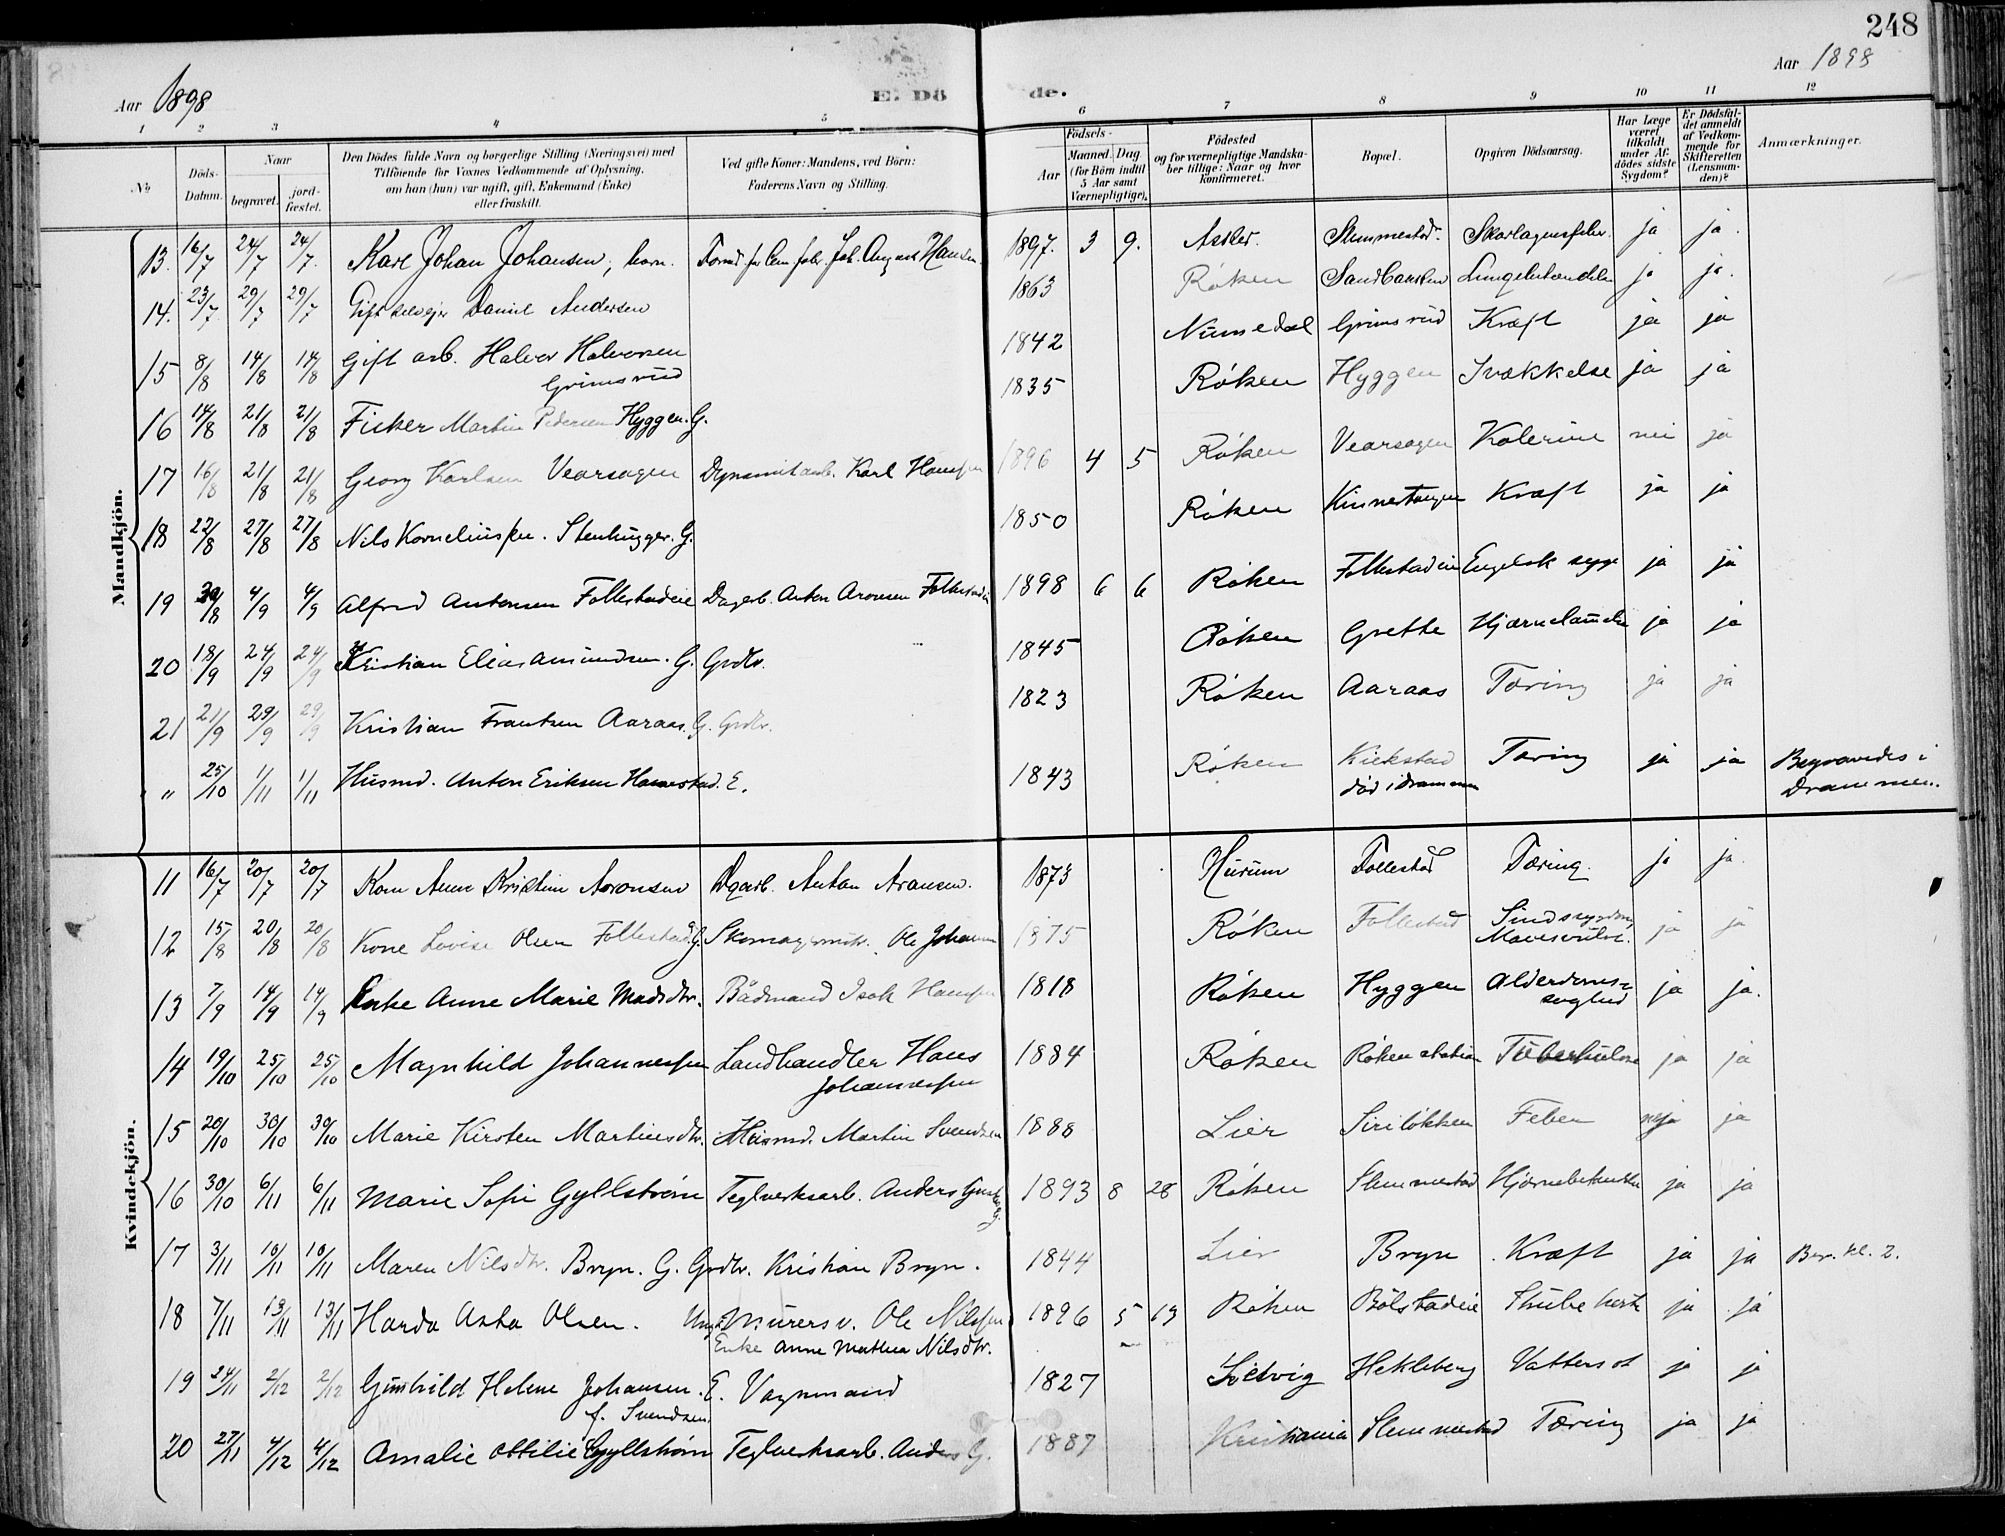 248
Aar 1898
Aar 1898
E. Dö de.
1 2 3 4 5 6 7 8 9 10 11 12
No
Döds-Datum.
Naar
begravet.
jord-fæstet.
Den Dödes fulde Navn og borgerlige Stilling (Næringsvei) med
Tilföiende for Voxnes Vedkommende af Oplysning,
om han (hun) var ugift, gift, Enkemand (Enke)
eller fraskilt.
Ved gifte Koner: Mandens, ved Börn:
Faderens Navn og Stilling.
Födsels-
Aar
Maaned. Dag
(for Börn indtil
5 Aar samt
Værnepligtige).
Födested
og for værnepligtige Mandska-
ber tillige: Naar og hvor
konfirmeret.
Bopæl.
Opgiven Dödsaarsag.
Har Læge
været
tilkaldt
under Af-
dödes sidste
Sygdom?
Er Dödsfal-
det anmeldt
af Vedkom-
mende for
Skifteretten
(Lensman-
den)?
Anmærkninger.
Mandkjön.
13. 16/7 24/7 24/7. Karl Johan Johansen, barn. August Hansen. 1897. 3 9. Asker. Slemmestad. Skarlagensfeber. ja ja.
14. 23/7 29/7 29/7 Gift selvejer Daniel Andersen 1863 Röken Lungebetændelse ja ja.
15 8/8 14/8 14/8 Gift arb. Halvor Halvorsen
Grimsrud 1842 Numedal Grimsrud Kræft ja ja
16 14/8 21/8 21/8 Fisker Martin Pedersen Hyggen. G. 1835 Röken Hyggen Svækkelse ja ja
17 16/8 21/8 21/8 Georg Karlsen Vearsagen Dynamitarb. Karl Hansen 1896 4 5 Röken Vearsagen Kolerine nei ja
18 22/8 27/8 27/8 Nils Korneliussen. Stenhugger. G. 1850 Röken Kinnertangen Kræft ja ja
19 30/8 4/9 4/9 Alfred Antonsen Follestadeie Dagarb. Anton Aronsen Follestadeie 1898 6 6 Röken Follestadeie Engelsk syge ja ja
20 18/9 24/9 24/9 Kristian Elias Amundsen. G. Grdbr. 1845 Röken Grette ja ja
21 21/9 29/9 29/9 Kristian Frantsen Aaraas. G. Grdbr. 1823 Röken Aaraas Tæring ja ja
" 25/10 1/11 1/11 Husmd. Anton Eriksen Hamestad. E. 1843 Röken Kiekstad
död i Drammen Tæring ja ja Begravedes i
Drammen.
Kvindekjön.
11 16/7 20/7 20/7 Kone Anne Kristine Aronsen Dgarb. Anton Aronsen. 1873 Hurum Follestad Tæring. ja ja.
12 15/8 20/8 20/8 Kone Lovise Olsen Follestad. G. Skomagermstr. Ole Johansen 1875 Röken Follestad Sindssygdom,
Mavesvulst. ja ja
13 7/9 14/9 14/9 Enke Anne Marie Madsdtr. Bådmand Isak Hansen 1818 Röken Hyggen Alderdoms-
svaghed ja ja.
14 19/10 25/10 25/10 Magnhild Johannessen Landhandler Hans
Johannessen 1884 Röken Röken station Tuberkulose ja ja
15 20/10 30/10 30/10 Marie Kirsten Martinsdtr. Husmd. Martin Svendsen 1888 Lier Sirilökken Feber ja ja
16 30/10 6/11 6/11 Marie Sofie Gyllström Teglverksarb. Anders 1893 8 28 Röken Slemmestad Hjernebetændelse ja ja
17 3/11 10/11 10/11 Maren Nilsdtr. Bryn. G. Grdbr. Kristian Bryn. 1844 Lier Bryn Kræft ja ja Ber. kl. 2.
18 7/11 13/11 13/11 Harda Asta Olsen. Murersv. Ole Nilssen 1896 5 19 Röken Bölstadeie Strubehoste ja ja
19 24/11 2/12 2/12 Gunhild Helene Johansen. E.
f. Svendsen. Enke Anne Mathea Nilsdtr.
Vognmand 1827 Hekleberg Vattersot ja ja
20 27/11 4/12 4/12 Amalie Ottilie Gyllström Teglverksarb. Anders G. 1887 Kristiania Slemmestad Tæring ja ja